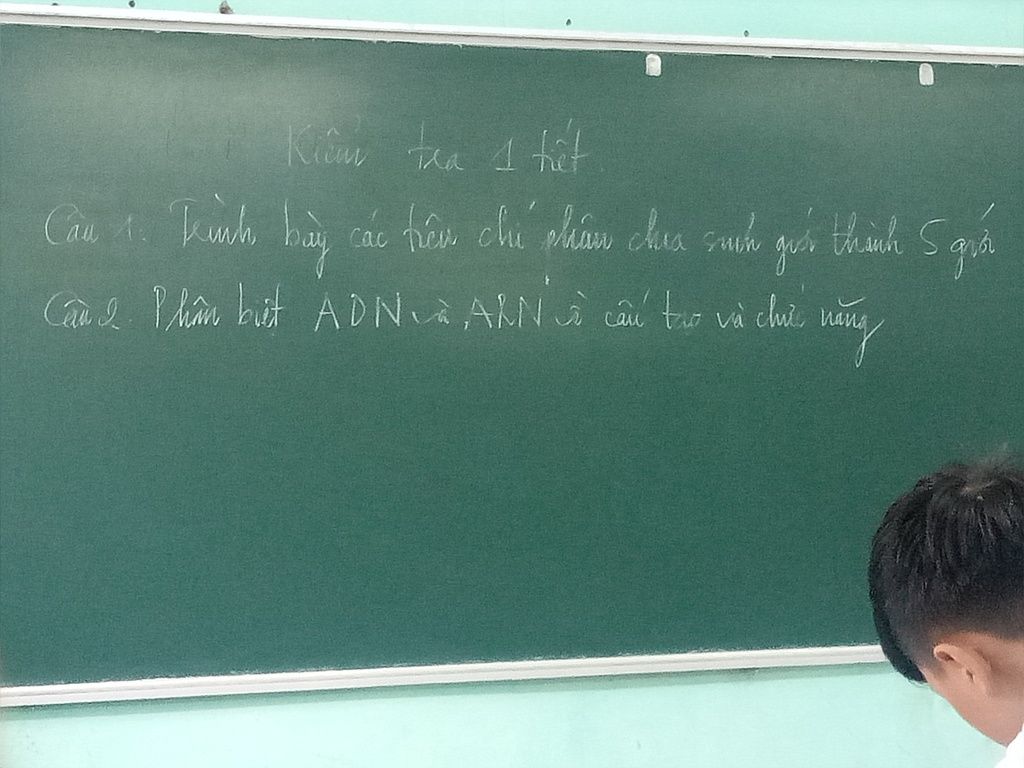 Kiểm tra 1 tiết
Câu 1. Trình bày các tiêu chí phân chia sinh giới thành 5 giới
Câu 2. Phân biệt ADN và ARN về cấu tạo và chức năng